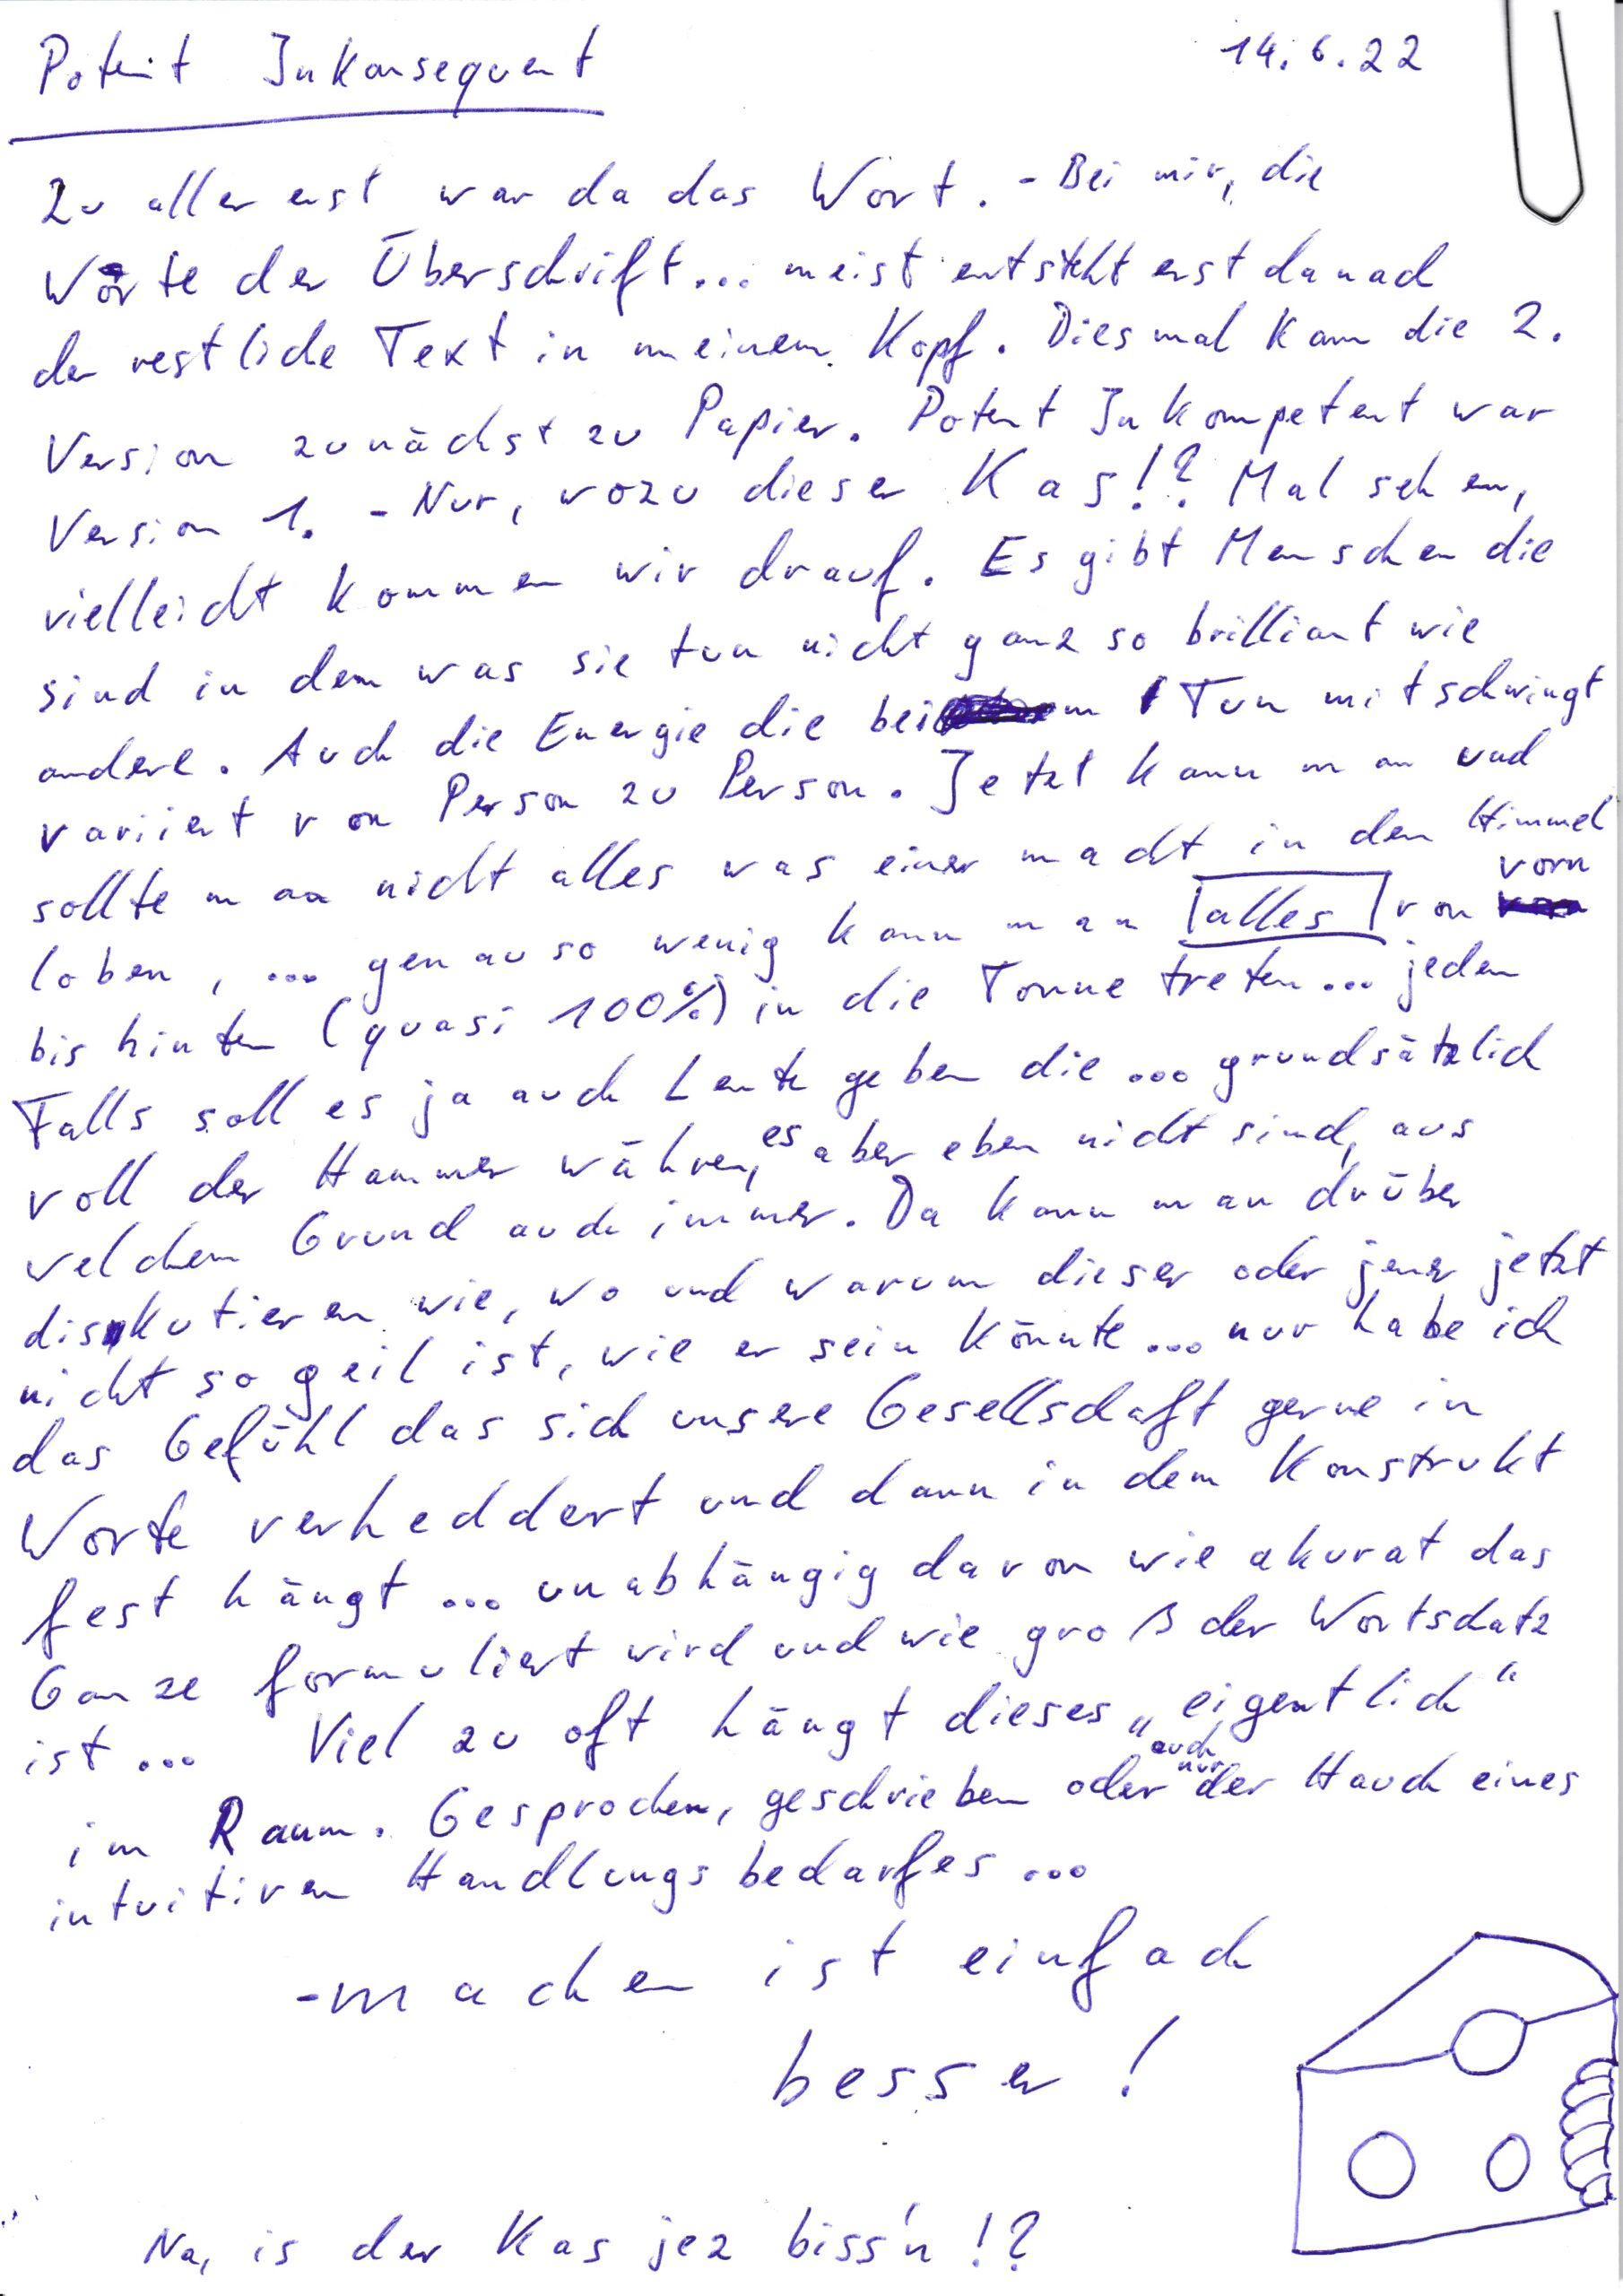 Potent Inkonsequent 14.6.22
Zu aller erst war da das Wort. - Bei mir, die
Worte der Überschrift... meist entsteht erst danach
der restliche Text in meinem Kopf. Diesmal kam die 2.
Version zunächst zu Papier. Potent Inkompetent war
Version 1. - Nur, wozu dieser Kas!? Mal sehen,
vielleicht kommen wir drauf. Es gibt Menschen die
sind in dem was sie tun nicht ganz so brilliant wie
andere. Auch die Energie die beim Tun mitschwingt
variiert von Person zu Person. Jetzt kann man und
sollte man nicht alles was einer macht in den Himmel
loben, ... genauso wenig kann man alles von vorn
bis hinten (quasi 100%) in die Tonne treten... jeden
Falls soll es ja auch Leute geben die ... grundsätzlich
voll der Hammer währen, es aber eben nicht sind, aus
welchem Grund auch immer. Da kann man drüber
diskutieren wie, wo und warum dieser oder jener jetzt
nicht so geil ist, wie er sein könnte... nur habe ich
das Gefühl das sich unsere Gesellschaft gerne in
Worte verheddert und dann in dem Konstrukt
fest hängt ... unabhängig davon wie akurat das
Ganze formuliert wird und wie groß der Wortschatz
ist... Viel zu oft hängt dieses „eigentlich“
im Raum. Gesprochen, geschrieben oder auch nur der Hauch eines
intuitiven Handlungsbedarfes ...
- machen ist einfach
besser!
Na, is der Kas jez biss'n!?